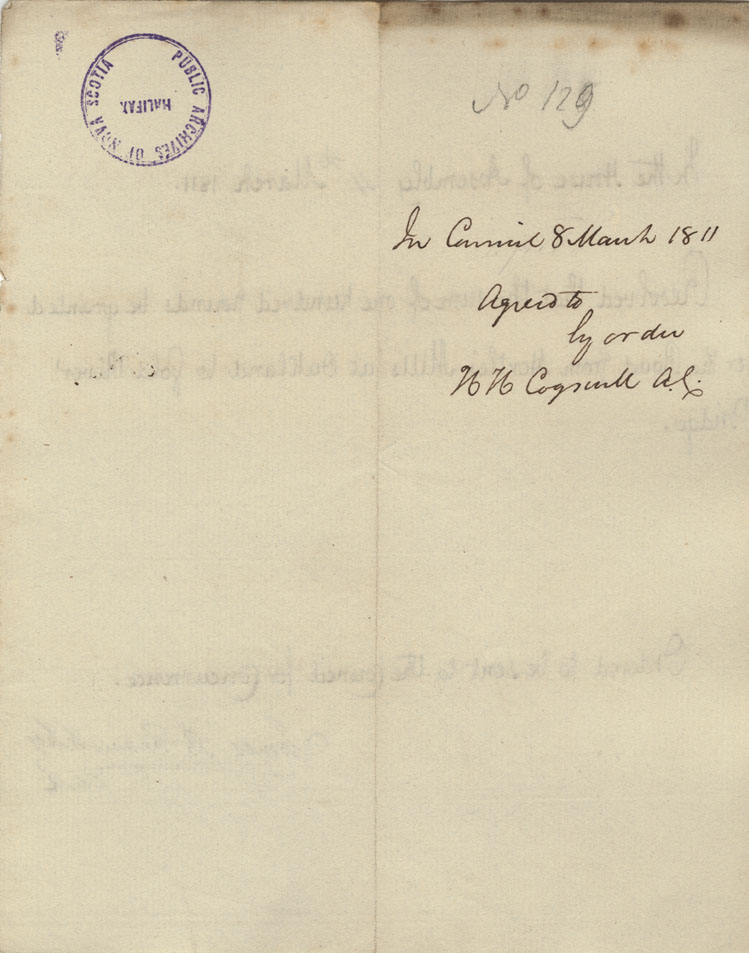 PUBLIC ARCHIVES OF NOVA SCOTIA
HALIFAX
No 129
In Council 8 March 1811
Agreed to
by order
H H Cogswell A.C.
In the House of Assembly 7th March 1811.
Resolved that the sum of one hundred pounds be granted
for the Road from Mills at Oakland to Gold River
Bridge.
Ordered to be sent to the Council for Concurrence.